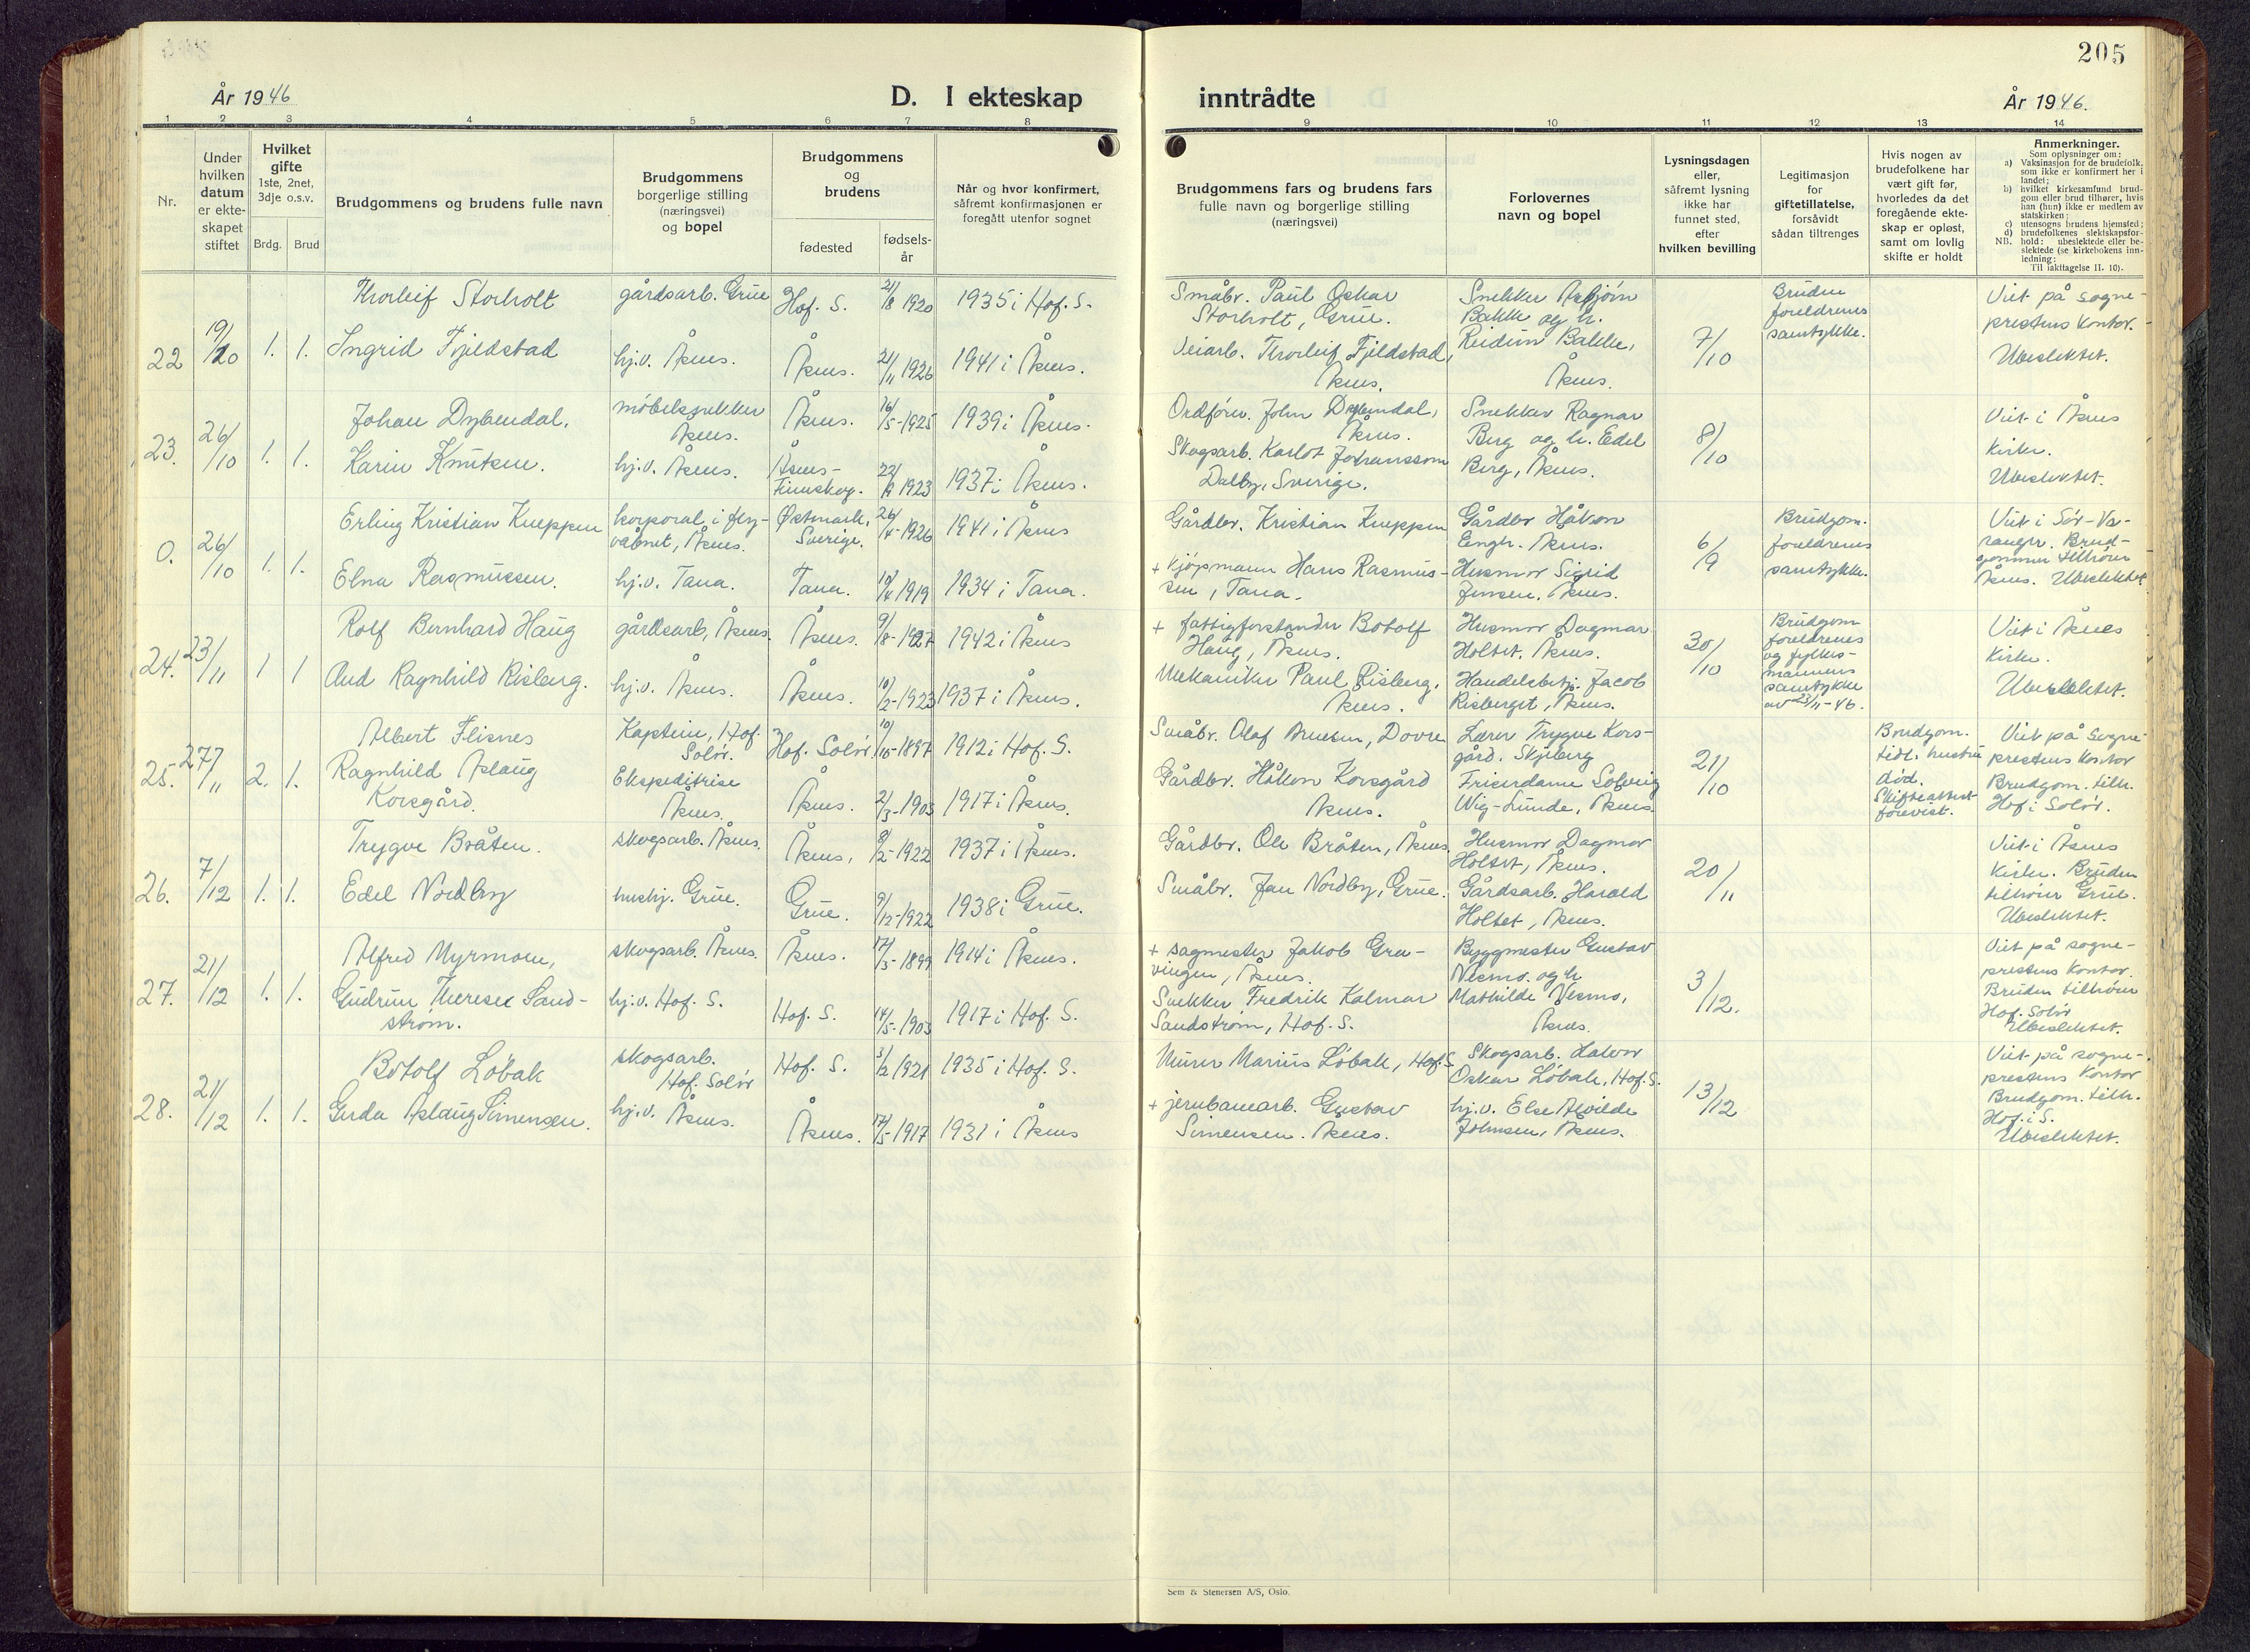 205
År 1946
D. I ekteskap
inntrådte
År 1946.
1 2 3 4 5 6 7 8 9 10 11 12 13 14
Nr.
Under
hvilken
datum
er ekte-
skapet
stiftet
Hvilket
gifte
1ste, 2net,
3dje o.s.v.
Brdg. Brud
Brudgommens og brudens fulle navn
Brudgommens
borgerlige stilling
(næringsvei)
og bopel
Brudgommens
og
brudens
fødested
fødsels-
år
Når og hvor konfirmert,
såfremt konfirmasjonen er
foregått utenfor sognet
Brudgommens fars og brudens fars
fulle navn og borgerlige stilling
(næringsvei)
Forlovernes
navn og bopel
Lysningsdagen
eller,
såfremt lysning
ikke har
funnet sted,
efter
hvilken bevilling
Legitimasjon
for
giftetillatelse,
forsåvidt
sådan tiltrenges
Hvis nogen av
brudefolkene har
vært gift før,
hvorledes da det
foregående ekte-
skap er opløst,
samt om lovlig
skifte er holdt
Anmerkninger.
Som oplysninger om:
a) Vaksinasjon for de brudefolk,
som ikke er konfirmert her i
landet;
b) hvilket kirkesamfund brud-
gom eller brud tilhører, hvis
han (hun) ikke er medlem av
statskirken;
c) utensogns brudens hjemsted;
d) brudefolkenes slektskapsfor-
NB. hold: ubeslektede eller be-
slektede (se kirkebokens inn-
ledning:
Til iakttagelse II. 10).
22
19/10
1. 1.
Thorleif Storholt
Ingrid Fjeldstad
gårdsarb. Grue
hj.v. Åsnes.
Hof. S.
Åsnes.
21/8 1920
21/11 1926
1935 i Hof. S.
1941 i Åsnes.
Småbr. Paul Oskar
Storholt, Grue.
Veiarb. Thorleif Fjeldstad,
Åsnes.
Snekker Asbjørn
Bakke og h.
Reidun Bakke,
Åsnes.
7/10
Bruden
foreldrenes
samtykke.
Viet på sogne-
prestens kontor.
Ubeslektet.
23.
26/10
1. 1.
Johan Dybendal.
Karin Knutsen.
møbelsnekker
Åsnes.
hj.v. Åsnes.
Åsnes.
Åsnes-
Finnskog.
16/5-1925
22/9 1923
1939 i Åsnes.
1937 i Åsnes.
Ordfører. John Dybendal,
Åsnes.
Skogsarb. Karlot Johanssom
Dalby, Sverige.
Snekker Ragnar
Berg og h. Edel
Berg, Åsnes.
8/10
Viet i Åsnes
Kirke.
Ubeslektet.
0.
26/10
1. 1.
Erling Kristian Kneppen
Elna Rasmussen.
korporal i fly-
våbnet, Åsnes.
hj.v. Tana.
Østmark,
Sverige.
Tana.
26/4-1926
1919
1941 i Åsnes
1934 i Tana.
Gårdbr. Kristian Kneppen
+ Kjøpmann Hans Rasmus-
sen, Tana.
Gårdbr Håkon
Engh. Åsnes.
Husmor Sigrid
Jensen, Åsnes.
6/9
Brudgom.
foreldrenes
samtykke.
Viet i Sør-Va-
ranger. Brud-
gommen tilhører
Åsnes. Ubeslektet
24.
23/11
1 1
Rolf Bernhard Haug
Aud Ragnhild Risberg.
gårdsarb, Åsnes.
hj.v. Åsnes.
Åsnes.
Åsnes.
9/8-1927
10/2-1923
1942 i Åsnes
1937 i Åsnes.
+ fattigforstander Botolf
Haug, Åsnes.
Mekaniker Paul Risberg,
Åsnes.
Husmor Dagmar
Holtet. Åsnes.
Handelsbetj. Jacob
Risberget, Åsnes.
30/10
Brudgom
foreldrenes
og fylkes-
mannens
samtykke
av 23/11-46.
Viet i Åsnes
Kirke.
Ubeslektet.
25.
27/11
2. 1.
Albert Flisnes
Ragnhild Aslaug
Korsgård.
Kaptein, Hof.
Solør.
Ekspeditrise
Åsnes.
Hof. Solør
Åsnes.
10/10-1897
2/3-1903
1912 i Hof. S.
1917 i Åsnes.
Småbr. Olaf Arnesen, Dovre
Gårdbr. Håkon Korsgård
Åsnes.
Lærer Trygve Kors-
gård. Skjeberg
Friserdame Solveig
Wig-Lunde, Åsnes.
21/10
Brudgom.
tidl. hustru
død.
Skifteattest
forevist.
Viet på sogne-
prestens kontor
Brudgom. tilh.
Hof i Solør.
26.
7/12
1. 1.
Trygve Bråten.
Edel Nordby
skogsarb. Åsnes.
hushj. Grue.
Åsnes,
Grue.
8/2-1922
9/12-1922
1937 i Åsnes.
1938 i Grue.
Gårdbr. Ole Bråten, Åsnes.
Småbr. Jan Nordby, Grue.
Husmor Dagmar
Holtet, Åsnes.
Gårdsarb. Harald
Holtet, Åsnes.
20/11
Viet i Åsnes
Kirke. Bruden
tilhører Grue.
Ubeslektet.
27.
21/12
1. 1.
Alfred Myrmoen,
Gudrun Therese Sand-
strøm.
skogsarb. Åsnes.
hj.v. Hof. S.
Åsnes.
Hof. S.
17/3-1899
14/5-1903
1914 i Åsnes.
1917 i Hof. S.
+ sagmester Jakob Gra-
vingen, Åsnes.
Snekker Fredrik Kalmar
Sandstrøm, Hof. S.
Byggmester Gustav
Nesmo. og h
Mathilde Nesmo,
Åsnes.
3/12.
Viet på sogne-
prestens kontor.
Bruden tilhører
Hof. Solør
Ubeslektet.
28.
21/12
1. 1.
Botolf Løbak
Gerda Aslaug Simensen.
skogsarb.
Hof. Solør
hj.v. Åsnes.
Hof. S.
Åsnes.
3/2 1921
17/5-1917
1935 i Hof. S.
1931 i Åsnes
Murer Marius Løbak, Hof. S.
+ jernbanearb. Gustav
Simensen. Åsnes.
Skogsarb. Halvor
Oskar Løbak, Hof. S.
hj.v. Else Alvilde
Johnsen, Åsnes.
13/12
Viet på sogne-
prestens kontor
Brudgom. tilh.
Hof. i S.
Ubeslektet.
Sem & Stenersen A/S, Oslo.